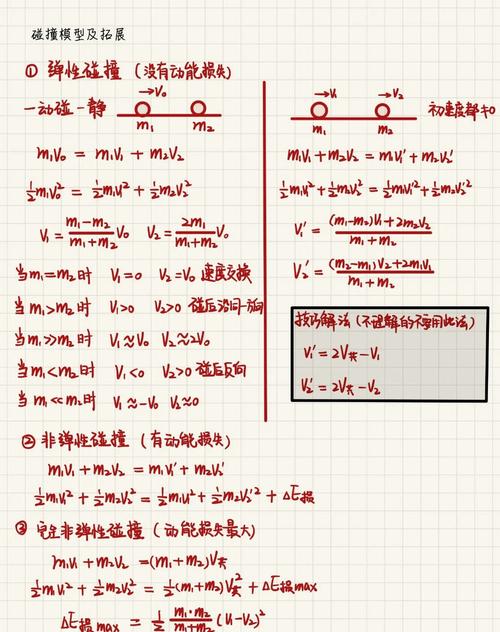 碰撞模型及拓展
① 弹性碰撞 (没有动能损失)
一动碰一静 →V₀
m₁ m₂
m₁V₀ = m₁V₁ + m₂V₂
½m₁V₀² = ½m₁V₁² + ½m₂V₂²
V₁ = (m₁-m₂)/(m₁+m₂) V₀ V₂ = 2m₁/(m₁+m₂) V₀
当 m₁=m₂ 时 V₁=0 V₂=V₀ 速度交换
当 m₁>m₂ 时 V₁>0 V₂>0 碰后沿同一方向
当 m₁>>m₂ 时 V₁≈V₀ V₂≈2V₀
当 m₁<m₂ 时 V₁<0 V₂>0 碰后反向
当 m₁<<m₂ 时 V₁≈-V₀ V₂≈0
→V₁ →V₂ 初速度都≠0
m₁ m₂
m₁V₁ + m₂V₂ = m₁V₁' + m₂V₂'
½m₁V₁² + ½m₂V₂² = ½m₁V₁'² + ½m₂V₂'²
V₁' = ((m₁-m₂)V₁+2m₂V₂)/(m₁+m₂)
V₂' = ((m₂-m₁)V₂+2m₁V₁)/(m₁+m₂)
技巧解法 (不理解的不要用此法)
V₁' = 2V共 - V₁
V₂' = 2V共 - V₂
② 非弹性碰撞 (有动能损失)
m₁V₁ + m₂V₂ = m₁V₁' + m₂V₂'
½m₁V₁² + ½m₂V₂² = ½m₁V₁² + ½m₂V₂'² + ΔE损
③ 完全非弹性碰撞 (动能损失最大)
m₁V₁ + m₂V₂ = (m₁+m₂)V共
½m₁V₁² + ½m₂V₂² = ½(m₁+m₂)V共² + ΔE损max
ΔE损max = ½ (m₁·m₂)/(m₁+m₂) (V₁-V₂)²